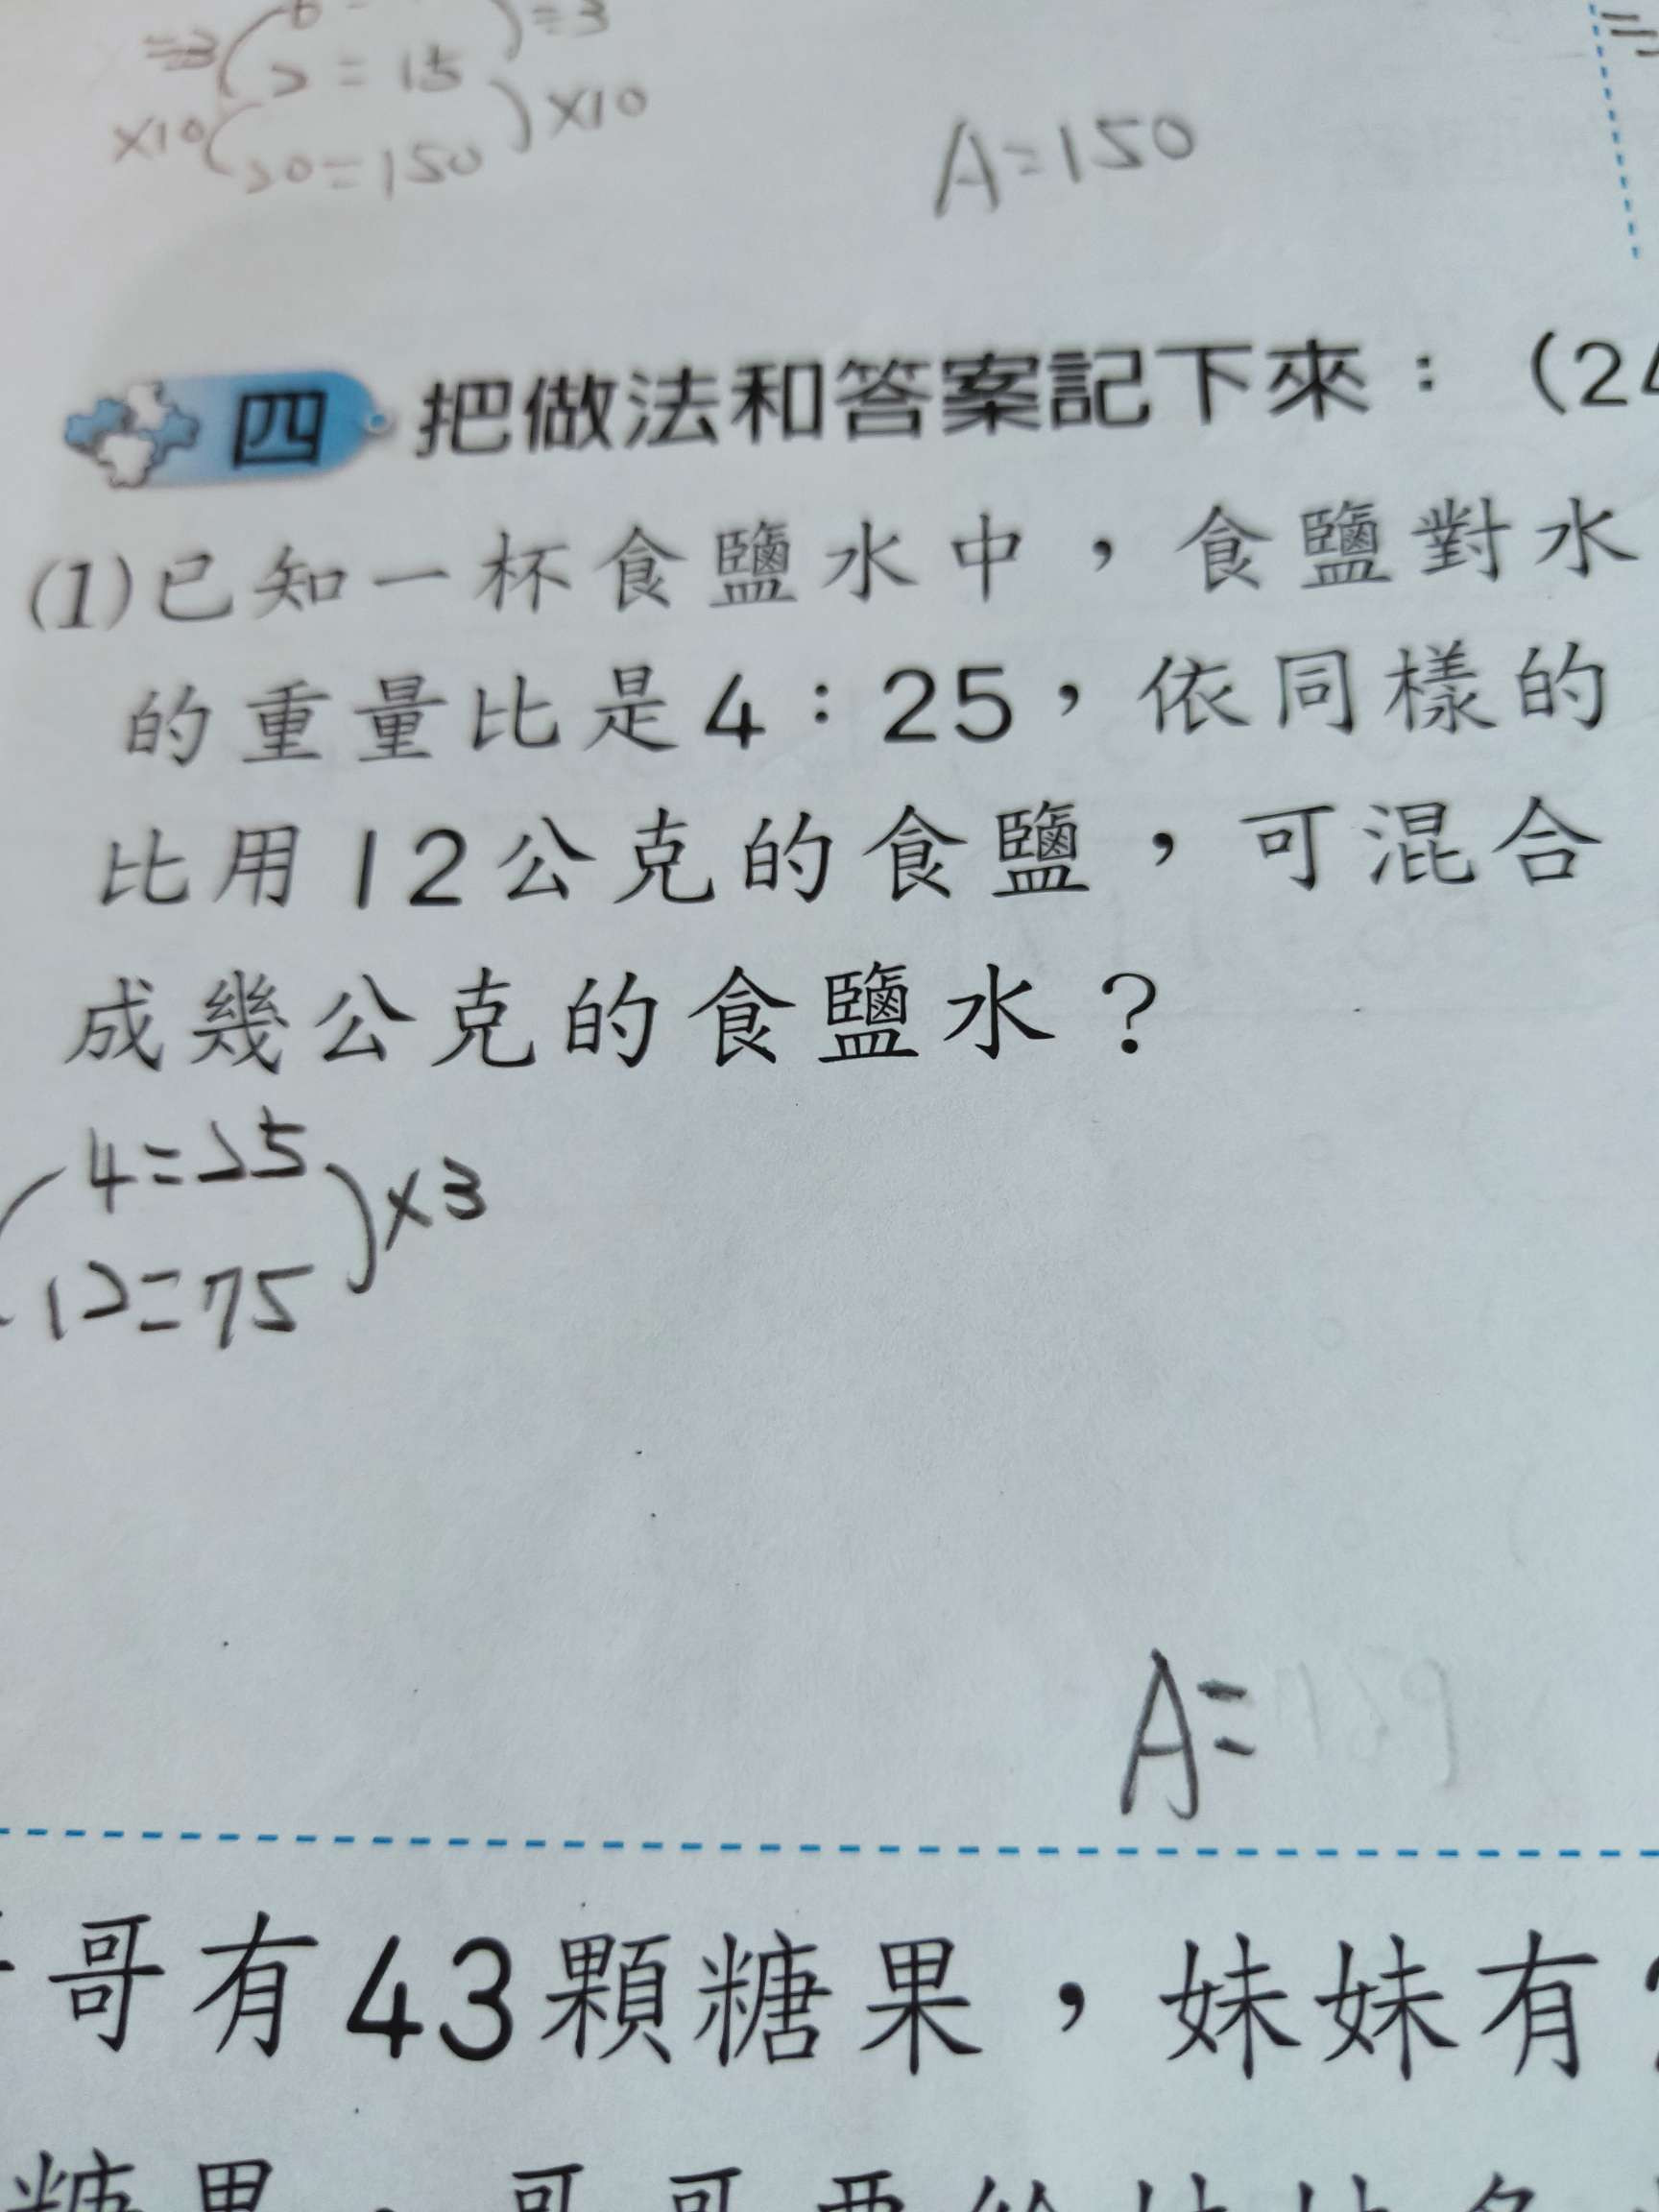 ÷3 ( ) ÷3
2 = 15
×10 ( ) ×10
20 = 150
A=150
四 把做法和答案記下來：（24
(1)已知一杯食鹽水中，食鹽對水
的重量比是4：25，依同樣的
比用12公克的食鹽，可混合
成幾公克的食鹽水？
4=25
×3
12=75
A=
哥有43顆糖果，妹妹有
糖果，哥哥要給妹妹多